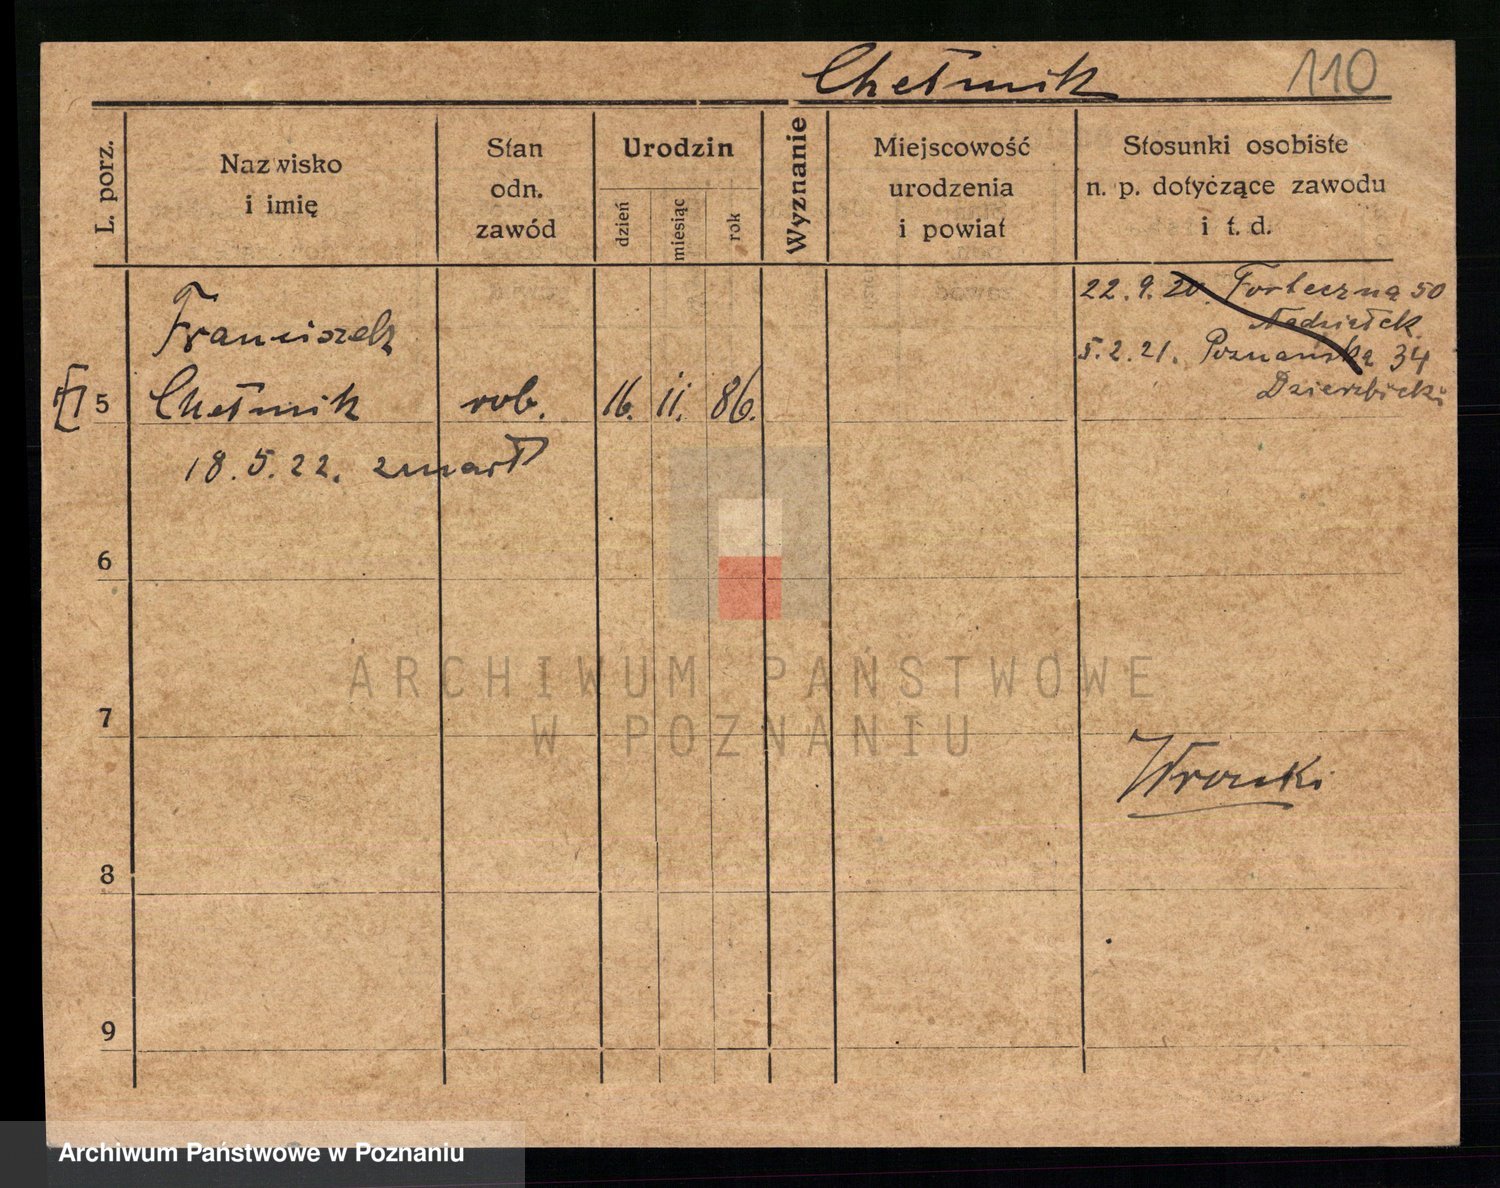 Chełmik 110
L. porz.
Nazwisko
i imię
Stan
odn.
zawód
Urodzin
dzień
miesiąc
rok
Wyznanie
Miejscowość
urodzenia
i powiat
Stosunki osobiste
n. p. dotyczące zawodu
i t. d.
22.9.20. Forteczna 50
5.2.21. Poznańska 34
Franciszek
5 Chełmik rob. 16. 11. 86.
18.5.22. zmarł
6
ARCHIWUM PAŃSTWOWE
W POZNANIU
7
Wronki
8
9
Archiwum Państwowe w Poznaniu